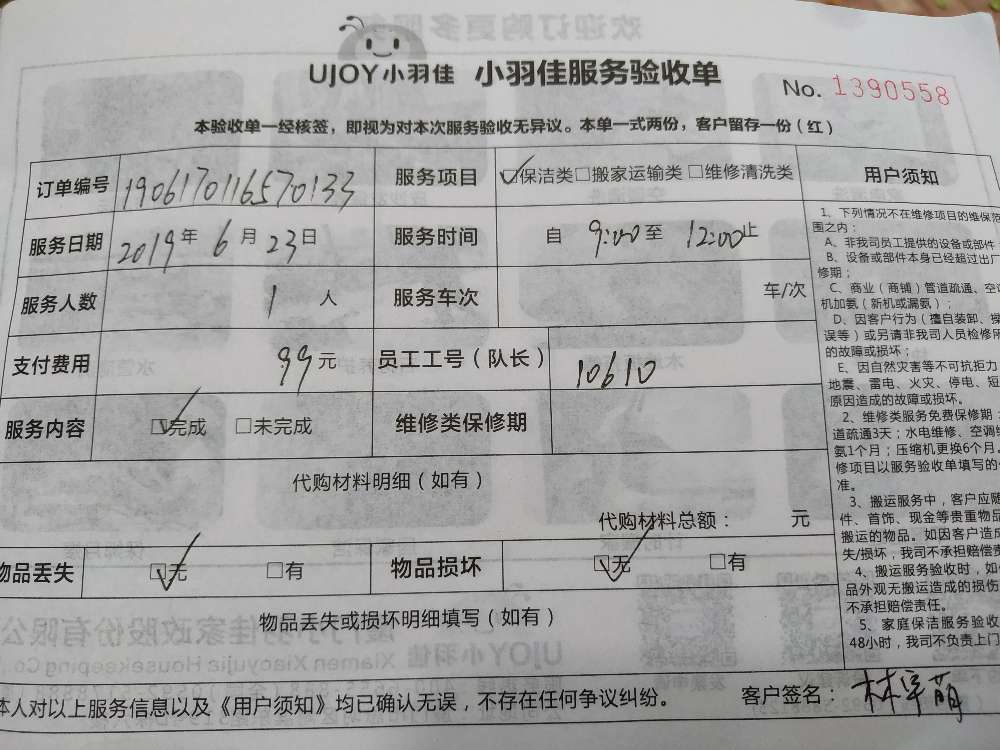 UJOY小羽佳 小羽佳服务验收单
No. 1390558
本验收单一经核签，即视为对本次服务验收无异议。本单一式两份，客户留存一份（红）
订单编号 1906170116570133 服务项目 ☑保洁类□搬家运输类□维修清洗类
服务日期 2019年6月23日 服务时间 自 9:00 至 12:00 止
服务人数 1 人 服务车次 车/次
支付费用 99元 员工工号（队长） 10610
服务内容 ☑完成 □未完成 维修类保修期
代购材料明细（如有）
代购材料总额： 元
物品丢失 ☑无 □有 物品损坏 ☑无 □有
物品丢失或损坏明细填写（如有）
本人对以上服务信息以及《用户须知》均已确认无误，不存在任何争议纠纷。 客户签名：林
用户须知
1、下列情况不在维修项目的维保范
围之内：
A、非我司员工提供的设备或部件
B、设备或部件本身已经超过出厂
修期；
C、商业（商铺）管道疏通、空
机加氨（新机或漏氨）；
D、因客户行为（擅自装卸、操
误等）或另请非我司人员检修所
的故障或损坏；
E、因自然灾害等不可抗拒力
地震、雷电、火灾、停电、短
原因造成的故障或损坏。
2、维修类服务免费保修期：
道疏通3天；水电维修、空调
氨1个月；压缩机更换6个月。
修项目以服务验收单填写的
准。
3、搬运服务中，客户应随
件、首饰、现金等贵重物品
搬运的物品。如因客户造成
失/损坏，我司不承担赔偿责
4、搬运服务验收时，如
品外观无搬运造成的损伤
不承担赔偿责任。
5、家庭保洁服务验收
48小时，我司不负责上门